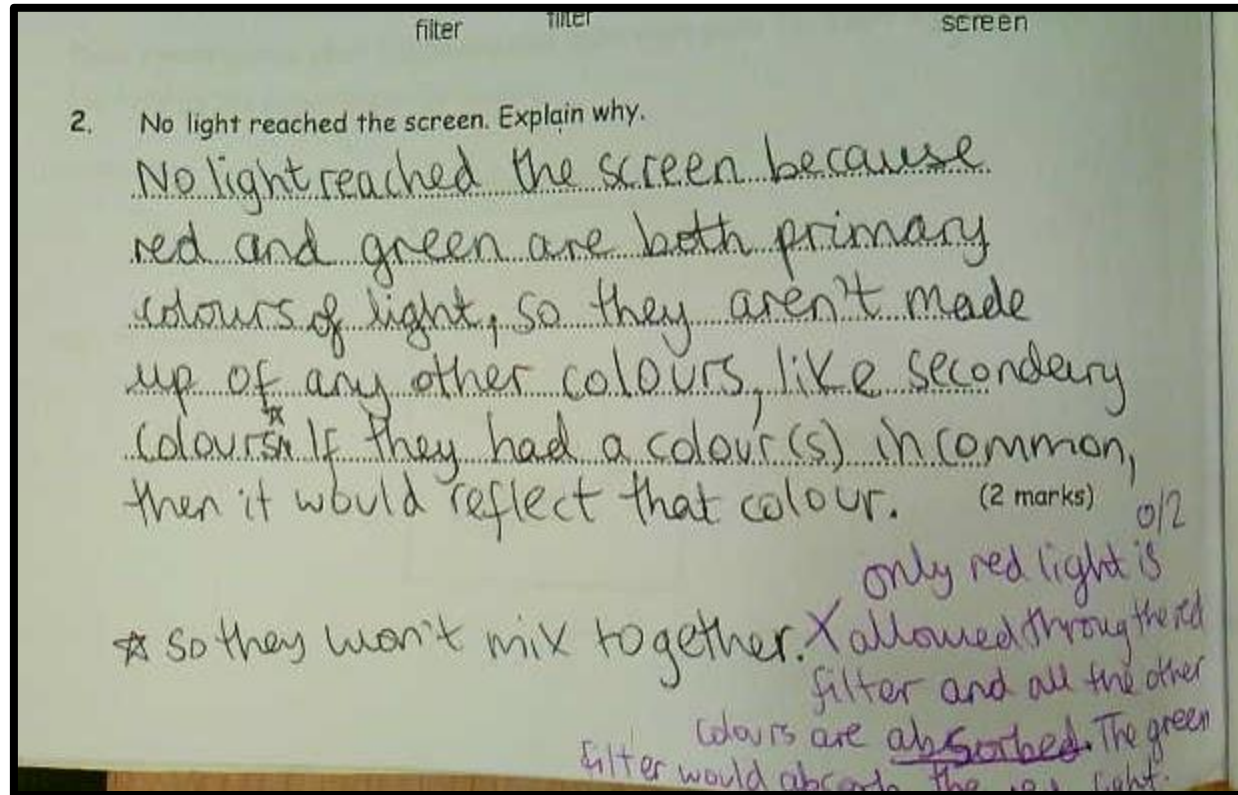 filter filter screen
2. No light reached the screen. Explain why.
No light reached the screen because
red and green are both primary
colours of light, so they aren't made
up of any other colours, like secondary
colours☆. If they had a colour(s) in common,
then it would reflect that colour. (2 marks)
0/2
only red light is
☆ so they won't mix together. X allowed throug the red
filter and all the other
colours are absorbed. The green
filter would absorb the red light.